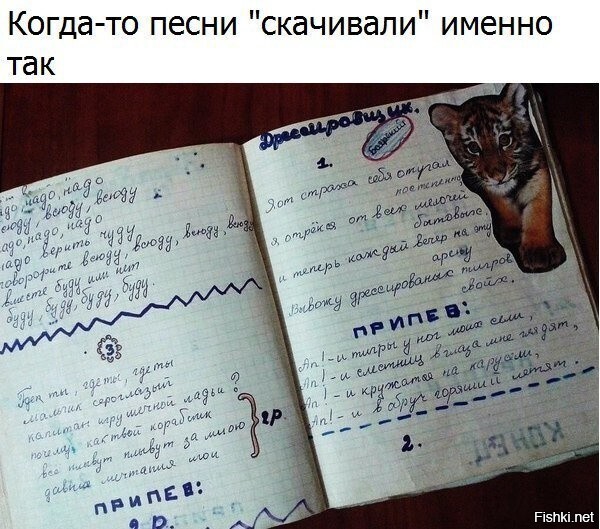 Когда-то песни "скачивали" именно
так
надо, надо, надо
всюду, всюду, всюду
надо, надо, надо
надо верить чуду
говорите всюду, всюду, всюду, всюду
вместе буду или нет
буду, буду, буду, буду.
3
Где ты, где ты, где ты
мальчик сероглазый
капитан игрушечной ладьи?
почему, как твой кораблик
всё плывут плывут за мною
давние мечтания мои
2р
ПРИПЕВ:
2 р.
Дрессировщик.
Боярский
1.
Я от страха себя отучал
постепенно
я отрёкся от всех мелочей
бытовых,
и теперь каждый вечер на эту
арену
Вывожу дрессированых тигров
своих.
ПРИПЕВ:
Ап! - и тигры у ног моих сели,
Ап! - и с лестниц в глаза мне глядят,
Ап! - и кружатся на карусели,
Ап! - и в обруч горящий летят.
2.
КОНЕЦ
Fishki.net